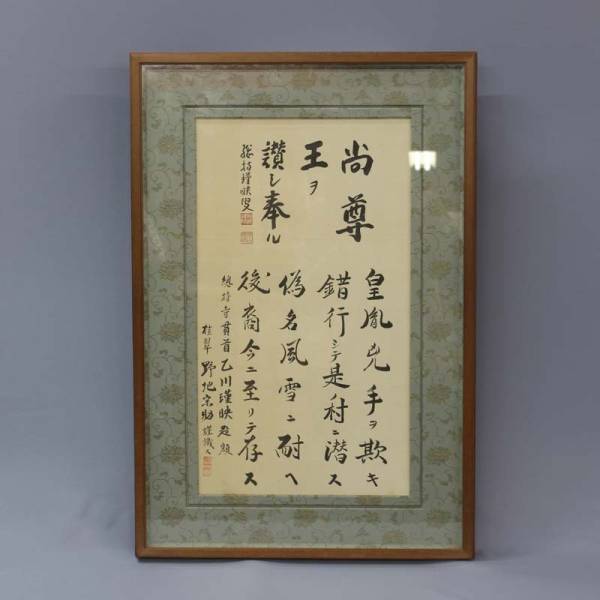 尚尊
王ヲ
讃シ奉ル
総持瑾映叟
皇胤兇手ヲ欺キ
錯行シテ是ノ村ニ潜ス
偽名風雪ニ耐ヘ
後裔今ニ至リテ存ス
総持寺貫首乙川瑾映題額
野地宗助謹識ス